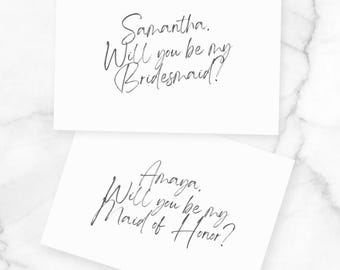 Samantha,
Will you be my
Bridesmaid?
Amaya,
Will you be my
Maid of Honor?